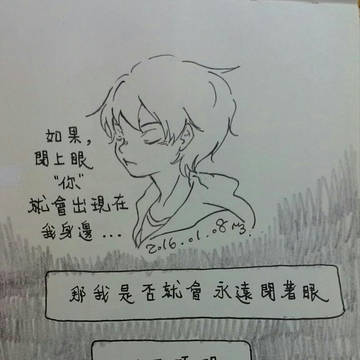 如果,
閉上眼
"你"
就會出現在
我身邊...
2016.01.08
那我是否就會永遠閉著眼